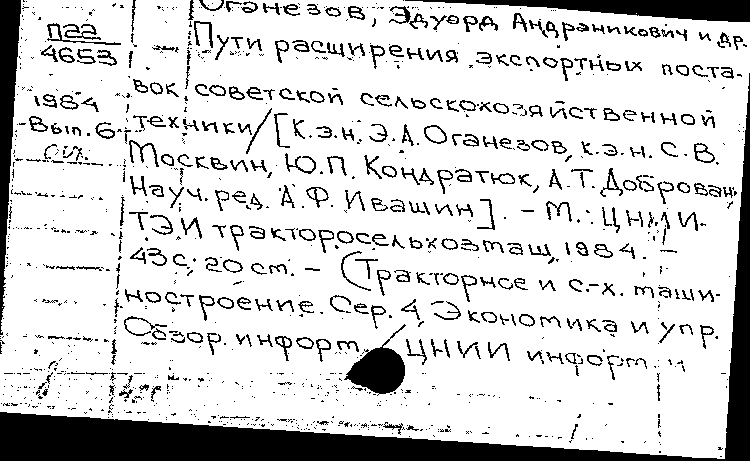 Оганезов, Эдуард Андраникович и др.
П22
4653
1984
Вып. 6
Пути расширения экспортных поста-
вок советской сельскохозяйственной
техники/[К.э.н. Э.А. Оганезов, к.э.н. С.В.
Москвин, Ю.П. Кондратюк, А.Т. Доброван;
Науч. ред. А.Ф. Ивашин]. – М.: ЦНИИ-
ТЭИ тракторосельхозмаш, 1984. –
43 с; 20 см. – (Тракторное и с.-х. маши-
ностроение. Сер. 4, Экономика и упр.
Обзор. информ. / ЦНИИ информ. и